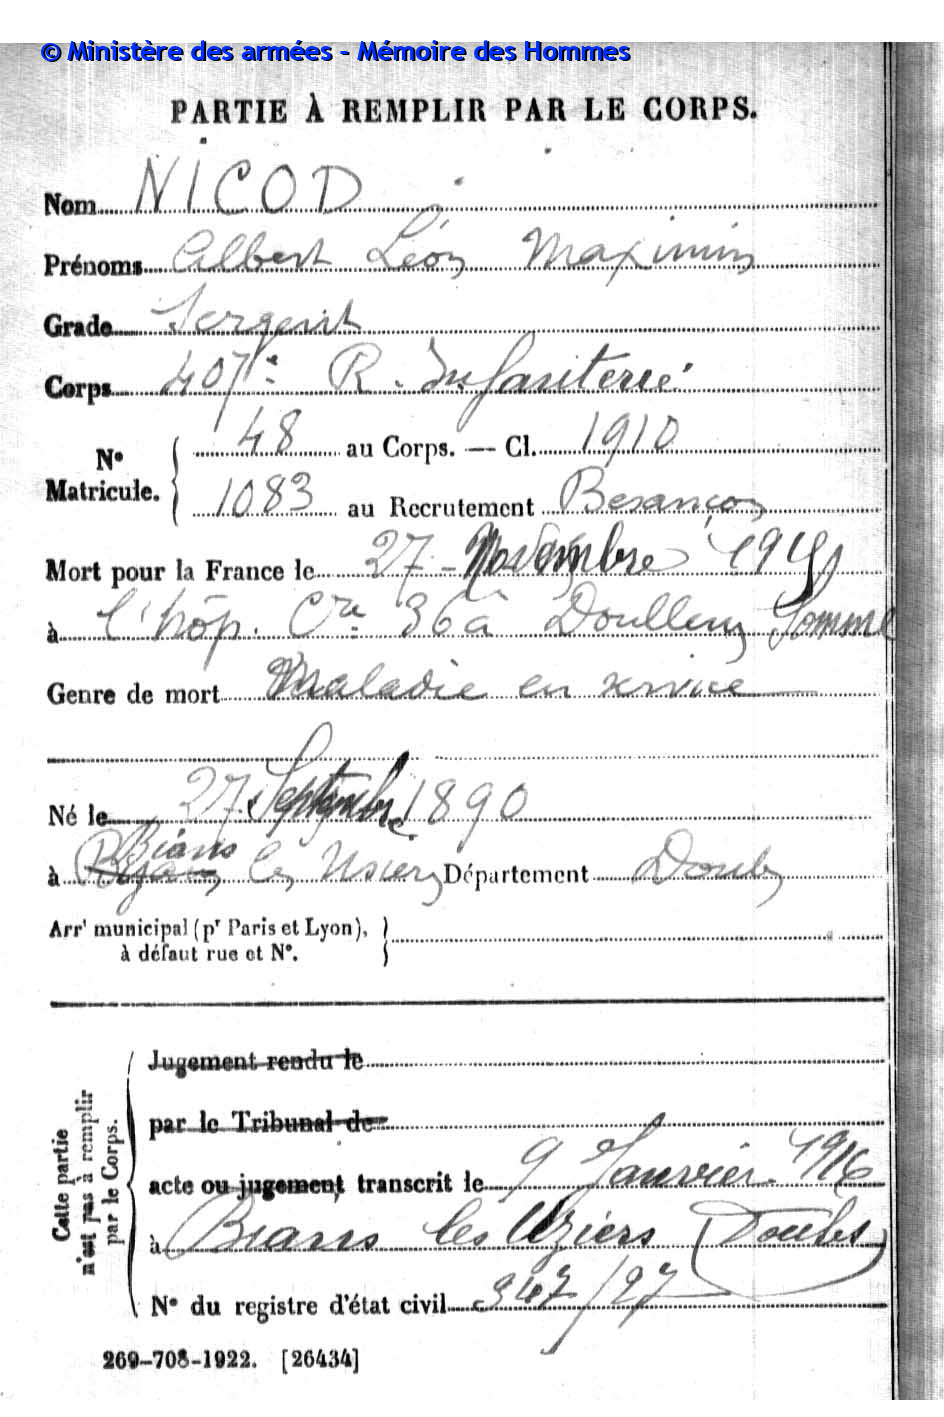 © Ministère des armées - Mémoire des Hommes
PARTIE À REMPLIR PAR LE CORPS.
Nom NICOD
Prénoms Albert Léon Maximin
Grade Sergent
Corps 407e R. Infanterie
N° Matricule. 48 au Corps. — Cl. 1910
1083 au Recrutement Besançon
Mort pour la France le 27 Novembre 1915
à l'hôp. Cre 36 à Doullens Somme
Genre de mort Maladie en service
Né le 27 Septembre 1890
à Bians les Usiers Département Doubs
Arrt municipal (pr Paris et Lyon),
à défaut rue et N°.
Cette partie n'est pas à remplir par le Corps.
Jugement rendu le
par le Tribunal de
acte ou jugement transcrit le 9 Janvier 1916
à Bians les Uziers (Doubs)
N° du registre d'état civil 347/27
269-708-1922. [26434]